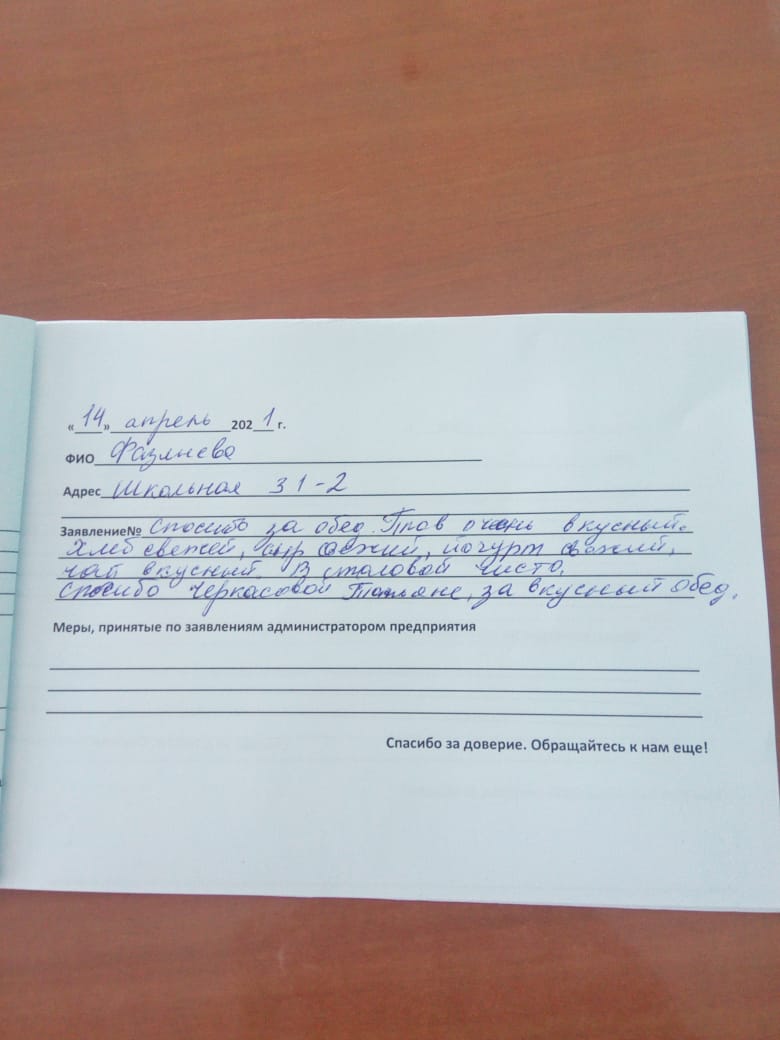 «14» апрель 2021 г.
ФИО Фазлыева
Адрес Школьная 31-2
Заявление№ Спосибо за обед. Плов очень вкусный.
Хлеб свежей, сыр свежий, йогурт свежий,
чай вкусный. В столовой чисто.
Спосибо Черкасовой Татьяне, за вкусный обед.
Меры, принятые по заявлениям администратором предприятия
Спасибо за доверие. Обращайтесь к нам еще!